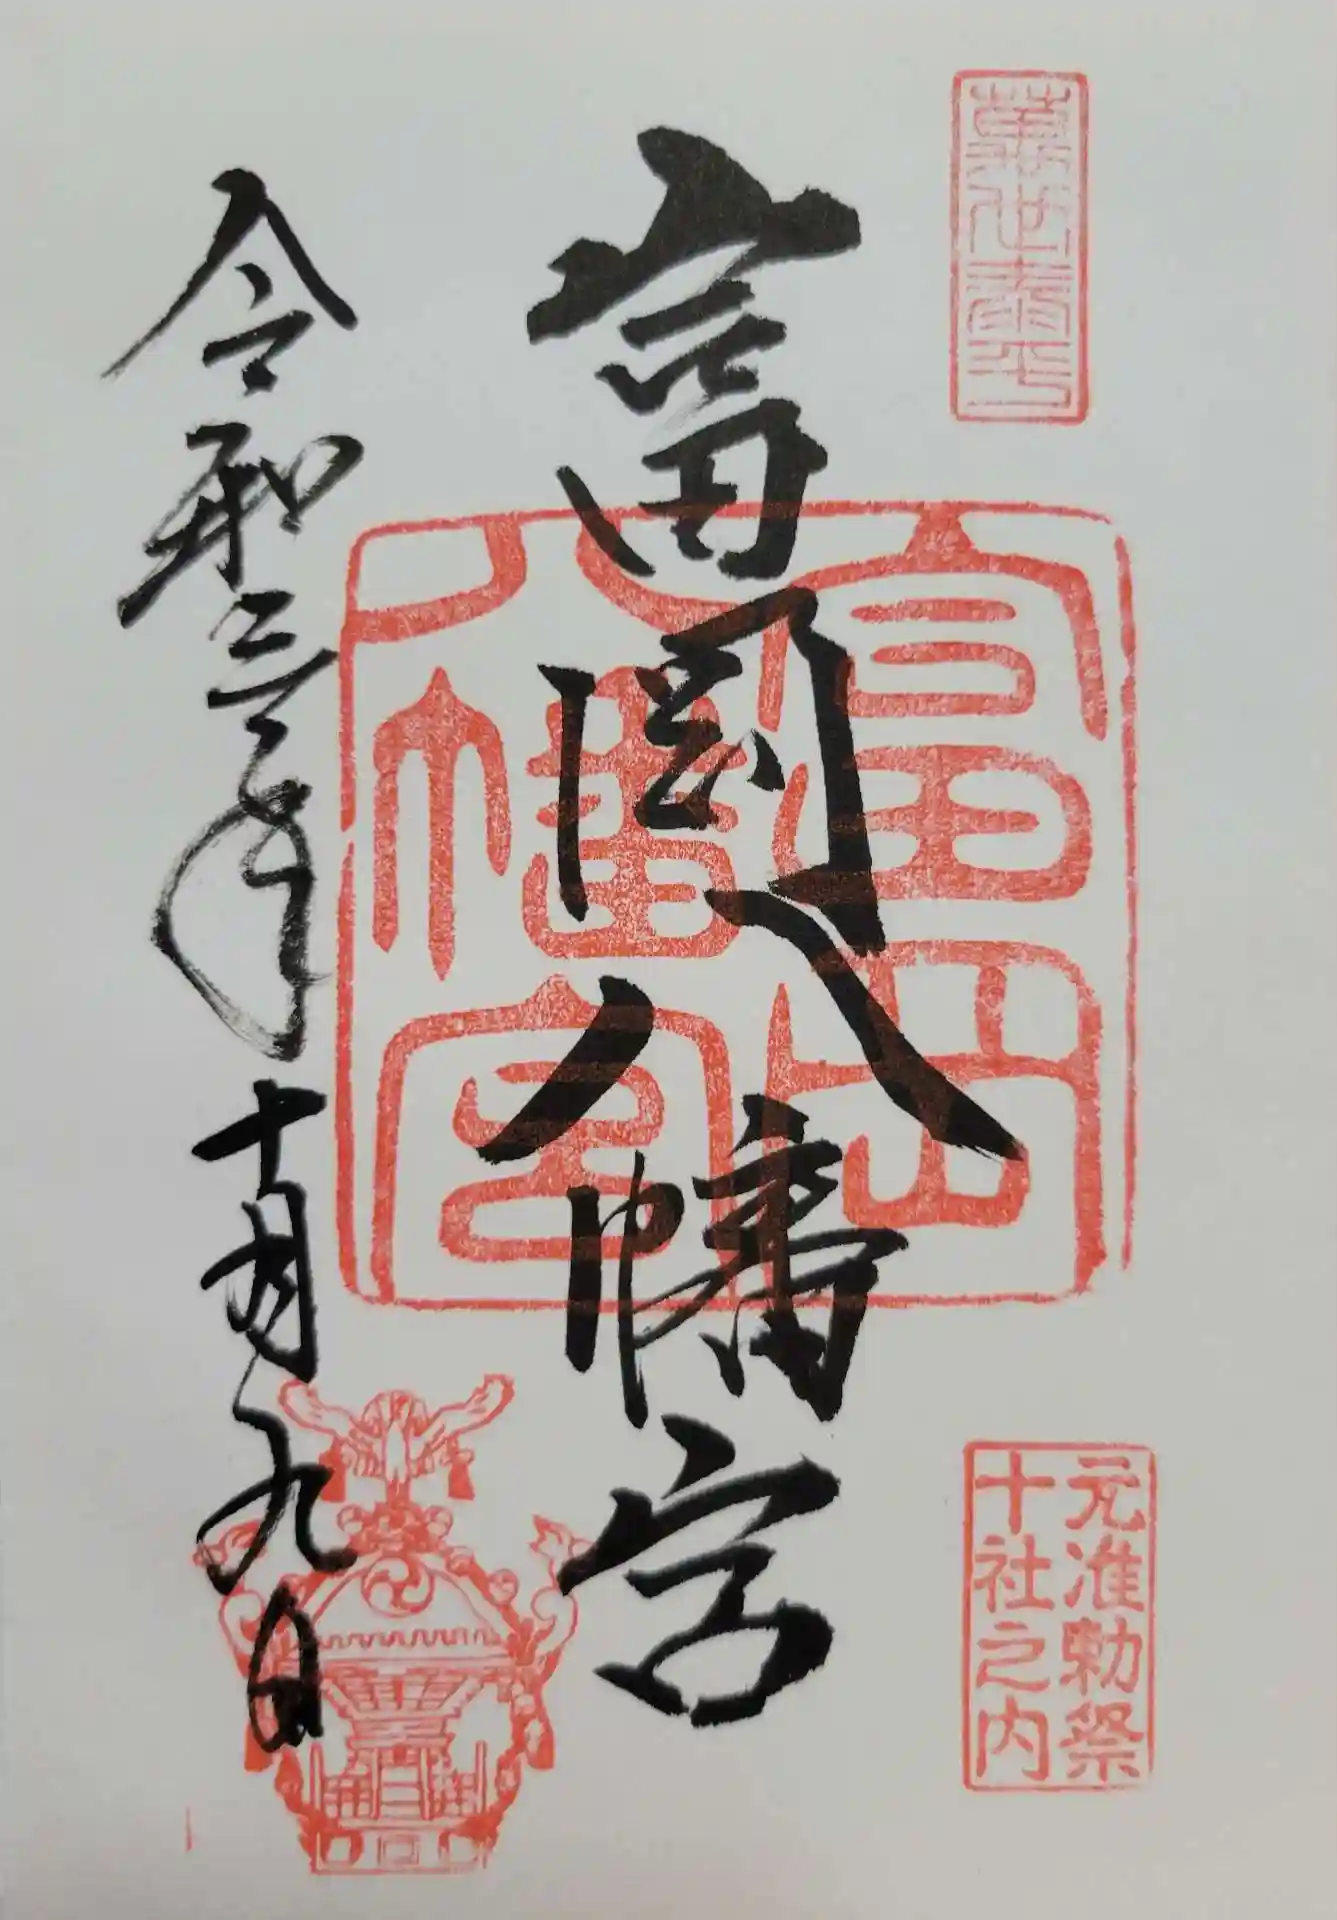 萬世泰平
元准勅祭
十社之内
富岡八幡宮
富岡
八幡宮
令和三年十月九日